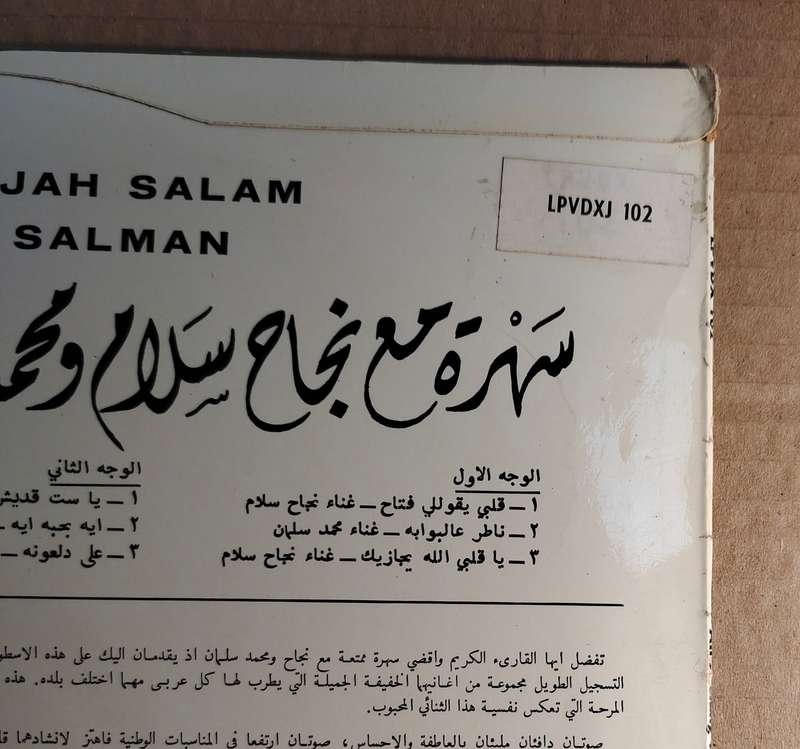 JAH SALAM
SALMAN
LPVDXJ 102
سَهْرة مع نجاح سَلام ومحم
الوجه الاول
١ ــ قلبي يقوللي فتاح ــ غناء نجاح سلام
٢ ــ ناطر عالبوابه ــ غناء محمد سلمان
٣ ــ يا قلبي الله يجازيك ــ غناء نجاح سلام
الوجه الثاني
١ ــ يا ست قديش
٢ ــ ايه بحبه ايه ــ
٣ ــ على دلعونه ــ
تفضل ايها القارىء الكريم واقضي سهرة ممتعة مع نجاح ومحمد سلمان اذ يقدمان اليك على هذه الاسطو
التسجيل الطويل مجموعة من اغانيهما الخفيفة الجميلة التي يطرب لها كل عربى مهما اختلف بلده. هذه
المرحة التي تعكس نفسية هذا الثنائي المحبوب.
صوتان دافئان مليئان بالعاطفة والاحساس، صوتان ارتفعا في المناسبات الوطنية فاهتز لانشادهما